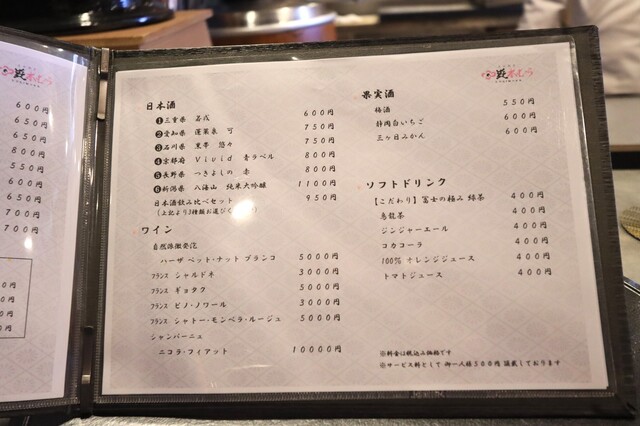 600円
650円
650円
800円
550円
650円
650円
700円
700円
日本酒
❶三重県 若戎 600円
❷愛知県 蓬莱泉 可 750円
❸石川県 黒帯 悠々 750円
❹京都府 Vivid 青ラベル 800円
❺長野県 つきよしの 赤 800円
❻新潟県 八海山 純米大吟醸 1100円
日本酒飲み比べセット 950円
(上記より3種類お選びく
ワイン
自然派微発泡
ハーザ ペット・ナット ブランコ 5000円
フランス シャルドネ 3000円
フランス ギョタク 5000円
フランス ピノ・ノワール 3000円
フランス シャトー・モンペラ・ルージュ 5000円
シャンパーニュ
ニコラ・フィアット 10000円
果実酒
梅酒 550円
静岡白いちご 600円
三ヶ日みかん 600円
ソフトドリンク
【こだわり】富士の極み 緑茶 400円
烏龍茶 400円
ジンジャーエール 400円
コカコーラ 400円
100% オレンジジュース 400円
トマトジュース 400円
※料金は税込み価格です
※サービス料として 御一人様300円 頂戴しております